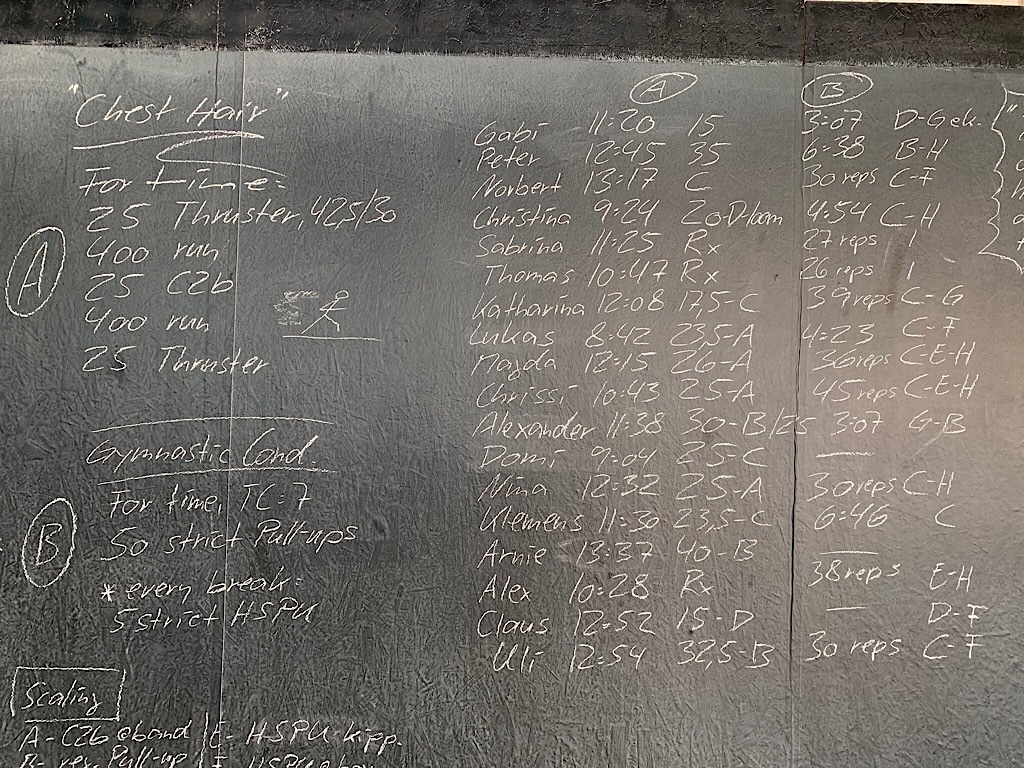 "Chest Hair"
For time:
25 Thruster, 42,5/30
400 run
25 C2b
400 run
25 Thruster
A
Gymnastic Cond.
For time, TC: 7
50 strict Pull-ups
* every break:
5 strict HSPU
B
Scaling
A- C2b @band | E- HSPU-kipp.
A B
Gabi 11:20 15 3:07 D-Gek.
Peter 12:45 35 6:38 B-H
Norbert 13:17 C 30 reps C-F
Christina 9:24 20-D 4:54 C-H
Sabrina 11:25 Rx 27 reps I
Thomas 10:47 Rx 26 reps I
Katharina 12:08 17,5-C 39 reps C-G
Lukas 8:42 23,5-A 4:23 C-F
Magda 12:15 26-A 36 reps C-E-H
Chrissi 10:43 25-A 45 reps C-E-H
Alexander 11:38 30-B/25 3:07 G-B
Domi 9:04 25-C —
Nina 12:32 25-A 30 reps C-H
Klemens 11:30 23,5-C 6:46 C
Arnie 13:37 40-B —
Alex 10:28 Rx 38 reps E-H
Claus 12:52 15-D — D-F
Uli 12:54 32,5-B 30 reps C-F